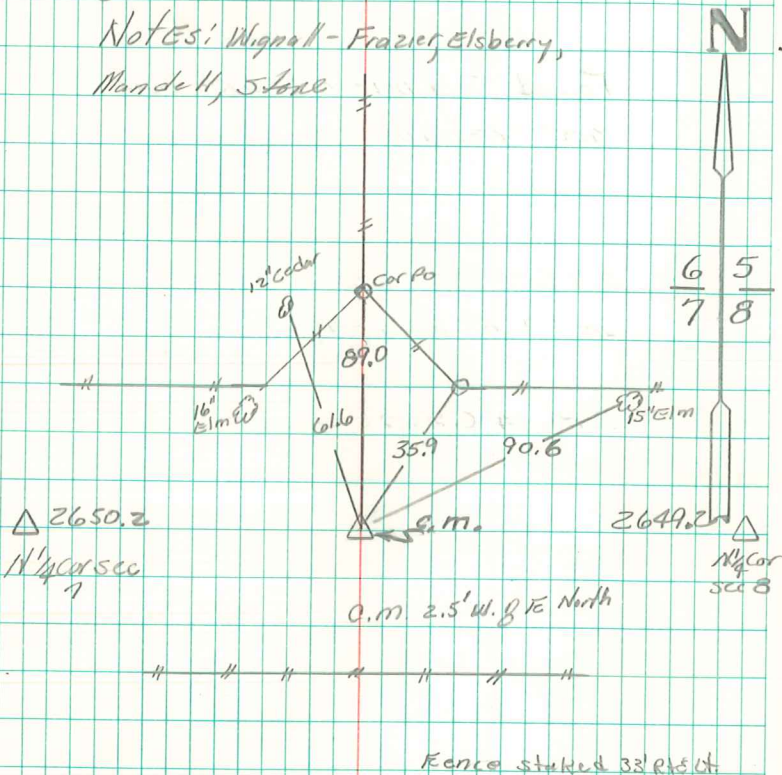 Notes: Wignall - Frazier, Elsberry,
Mandell, Stone
N
12" Cedar
Cor Po
6 5
7 8
89.0
16"
Elm
61.6
35.9
90.6
15" Elm
2650.2
C.M.
2649.2
N 1/4 Cor Sec
7
N 1/4 Cor
Sec 8
C.M. 2.5' W. of E North
Fence staked 33' Rt & Lt.